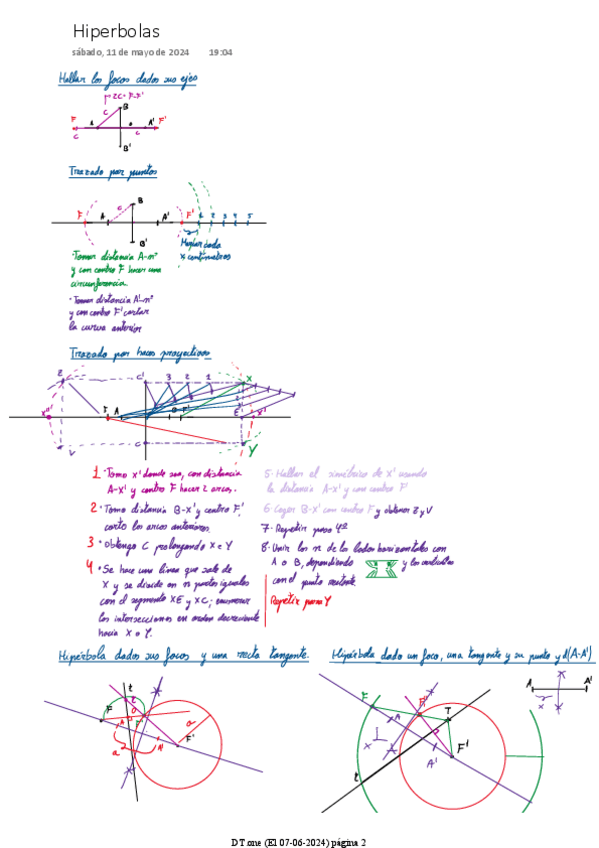 Hiperbolas
sábado, 11 de mayo de 2024 19:04
Hallar los focos dados sus ejes
2C = F-F'
B
C
F
A
A'
F'
C
C
B'
Trazado por puntos
B
C
F
A
A'
F'
1 2 3 4 5
B'
· Tomar distancia A-nº
y con centro F hacer una
circunferencia.
cada
x centímetros
· Tomar distancia A'-nº
y con centro F' cortar
la curva anterior
Trazado por haces proyectivos
Z
C'
3 2 1
X
x''
F
A
B
F'
E
x'
V
C
Y
1 · Tomo x' donde sea, con distancia
A-x' y centro F hacer 2 arcos.
2 · Tomo distancia B-x' y centro F',
corto los arcos anteriores
3 · Obtengo C prolongando X e Y
4 · Se hace una línea que sale de
X y se divide en n partes iguales
con el segmento XE y XC; enumerar
las intersecciones en orden decreciente
hacia X o Y.
5 · Hallar el simétrico de x' usando
la distancia A-x' y con centro F'
6 · Coger B-x' con centro F y obtener Z y V
7 · Repetir paso 4º
8 · Unir los n de los lados horizontales con
A o B, dependiendo y los verticales
con el punto restante
Repetir para Y
Hipérbola dados sus focos y una recta tangente.
t
F
O
A
a
A'
F'
a
Hipérbola dado un foco, una tangente y su punto y d(A-A')
F
A
F'
T
x
A'
F'
t
A
A'
x
x
DT one (El 07-06-2024) página 2